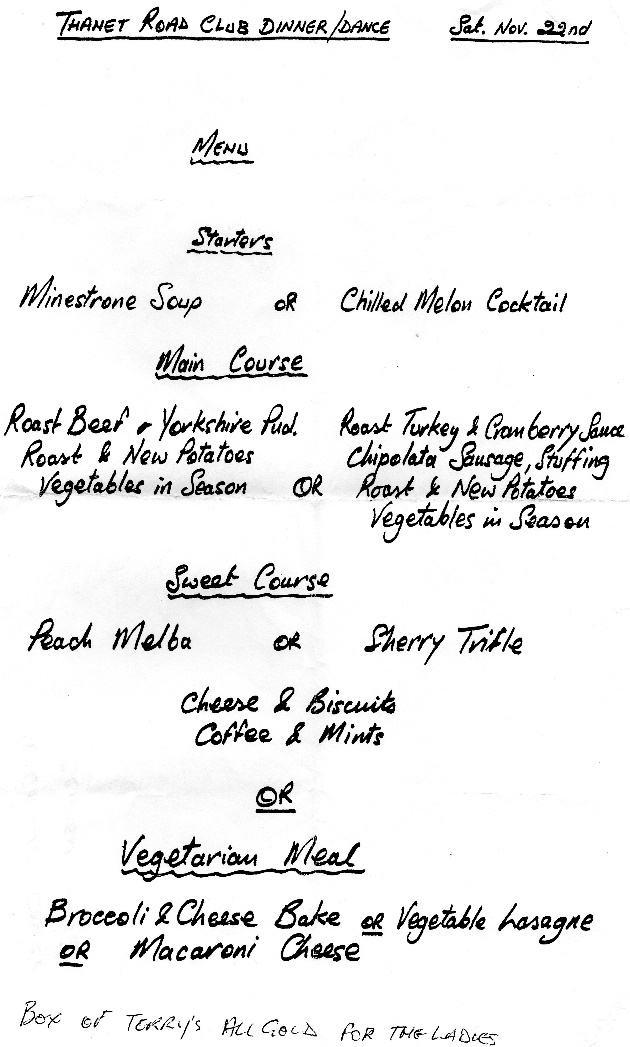 THANET ROAD CLUB DINNER/DANCE Sat. Nov. 22nd
MENU
Starters
Minestrone Soup OR Chilled Melon Cocktail
Main Course
Roast Beef & Yorkshire Pud. Roast Turkey & Cranberry Sauce
Roast & New Potatoes Chipolata Sausage, Stuffing
Vegetables in Season OR Roast & New Potatoes
Vegetables in Season
Sweet Course
Peach Melba OR Sherry Trifle
Cheese & Biscuits
Coffee & Mints
OR
Vegetarian Meal
Broccoli & Cheese Bake OR Vegetable Lasagne
OR Macaroni Cheese
BOX OF TERRY'S ALL GOLD FOR THE LADIES